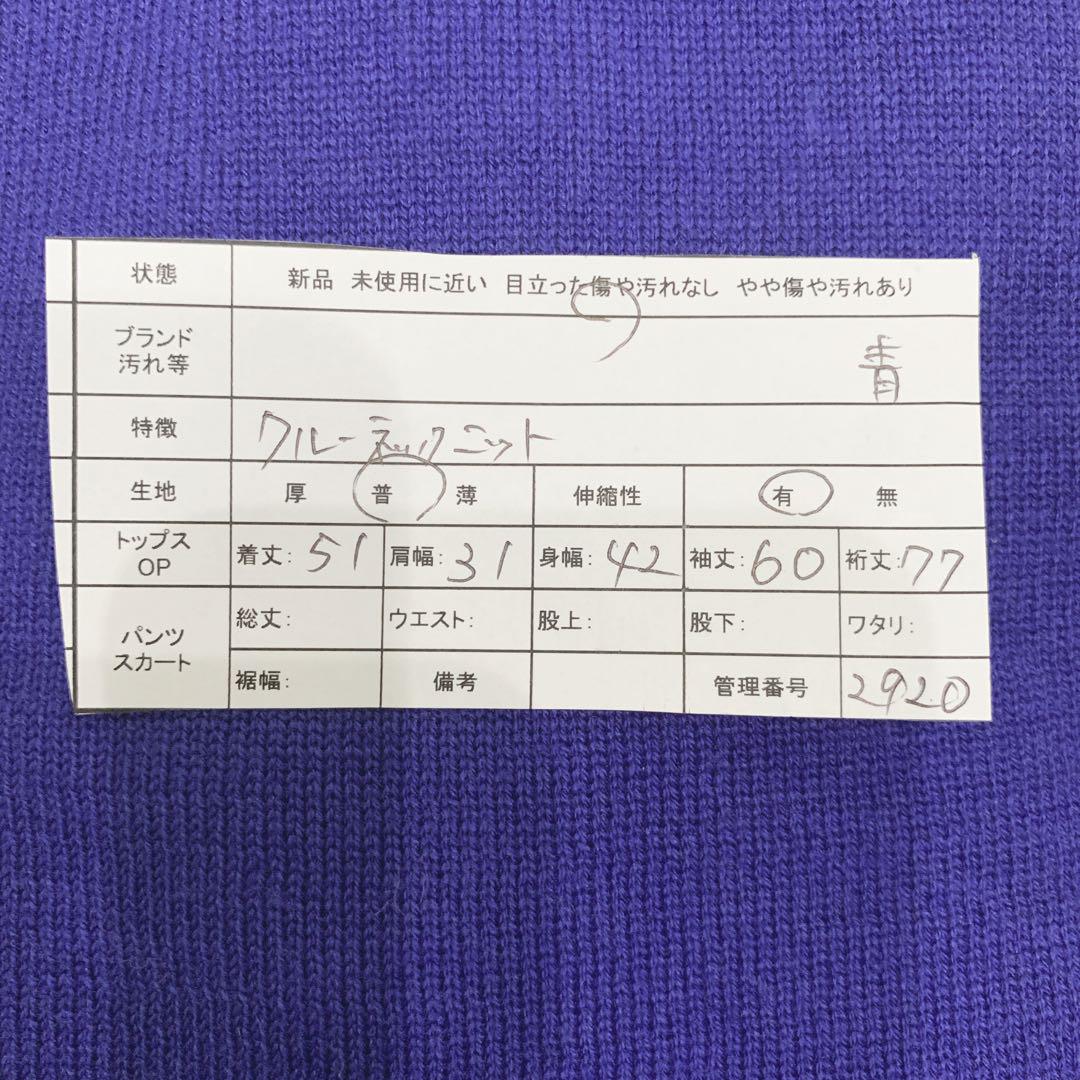 状態 新品 未使用に近い 目立った傷や汚れなし やや傷や汚れあり
ブランド
汚れ等 青
特徴 クルーネックニット
生地 厚 普 薄 伸縮性 有 無
トップス
OP 着丈: 51 肩幅: 31 身幅: 42 袖丈: 60 裄丈: 77
パンツ
スカート 総丈: ウエスト: 股上: 股下: ワタリ:
裾幅: 備考 管理番号 2920